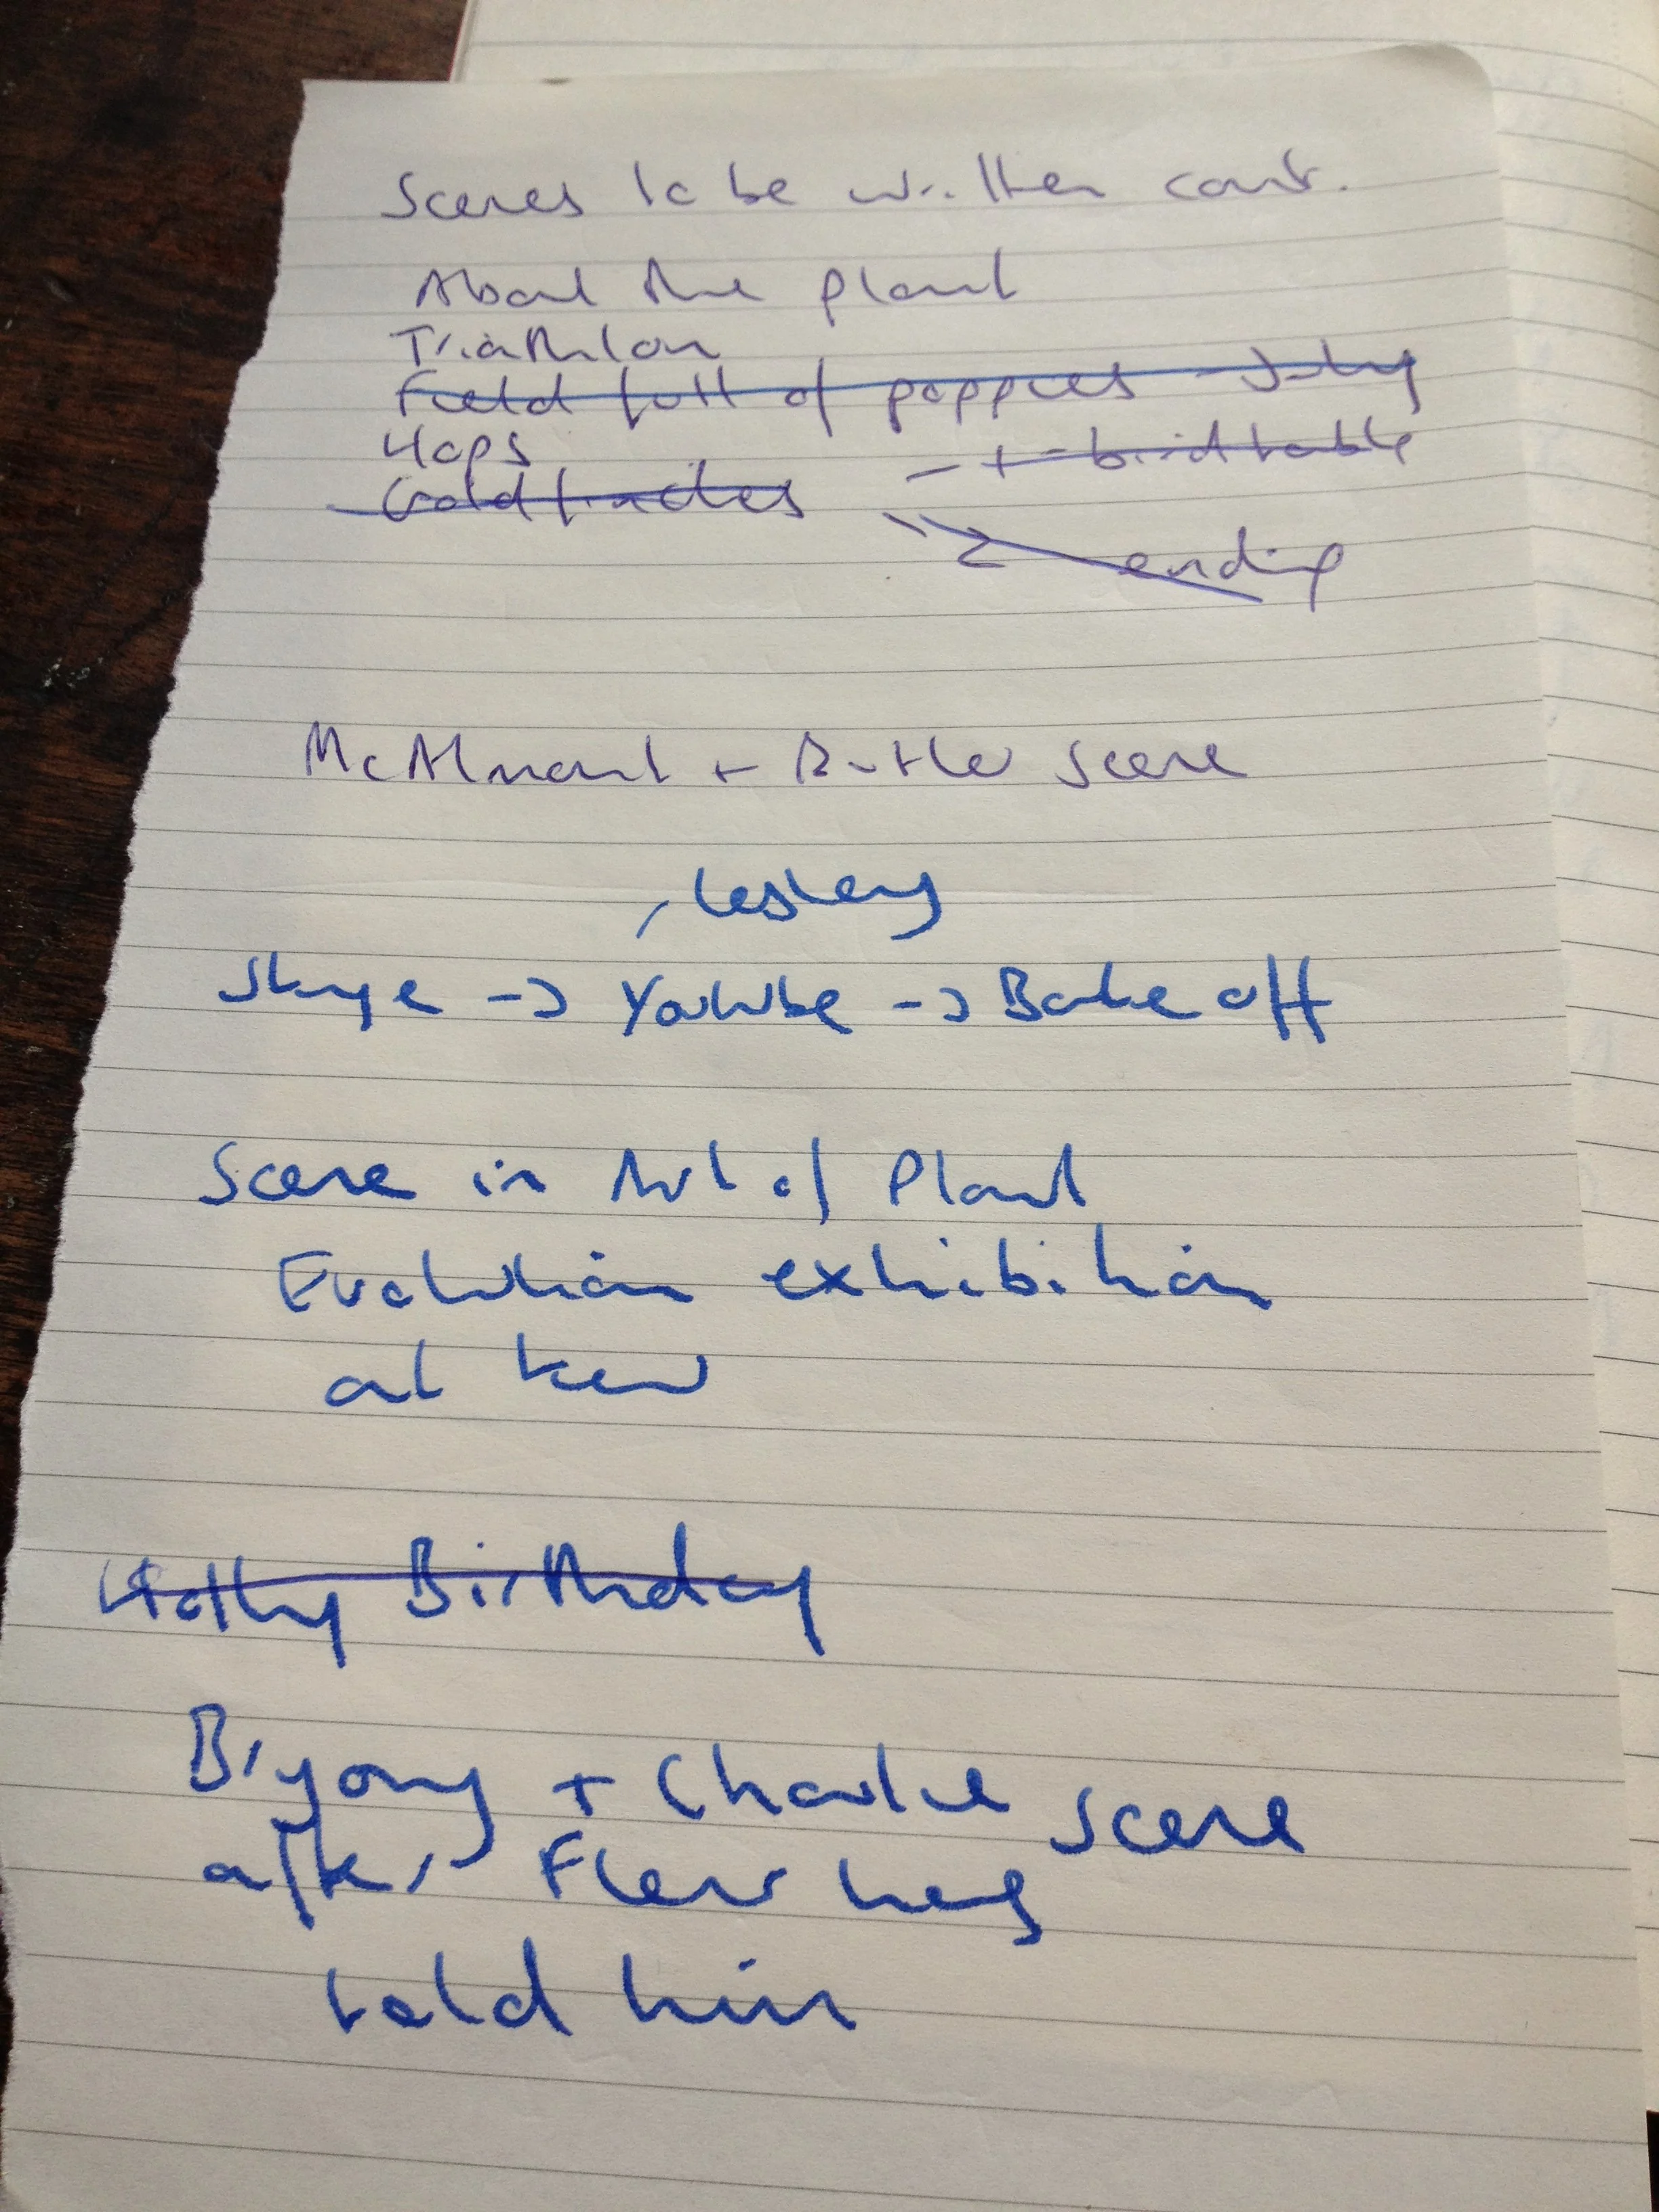 Scenes to be written cont.
About the plant
Triathlon
Field full of poppies - July
Hops - + birdtable
Goldfinches
ending
McAlmont + Butler scene
Lesley
Skype -> YouTube -> Bake off
Scene in Art of Plant
Evolution exhibition
at Kew
Holly Birthday
Biyong + Charlie scene
after Fleur has
told him